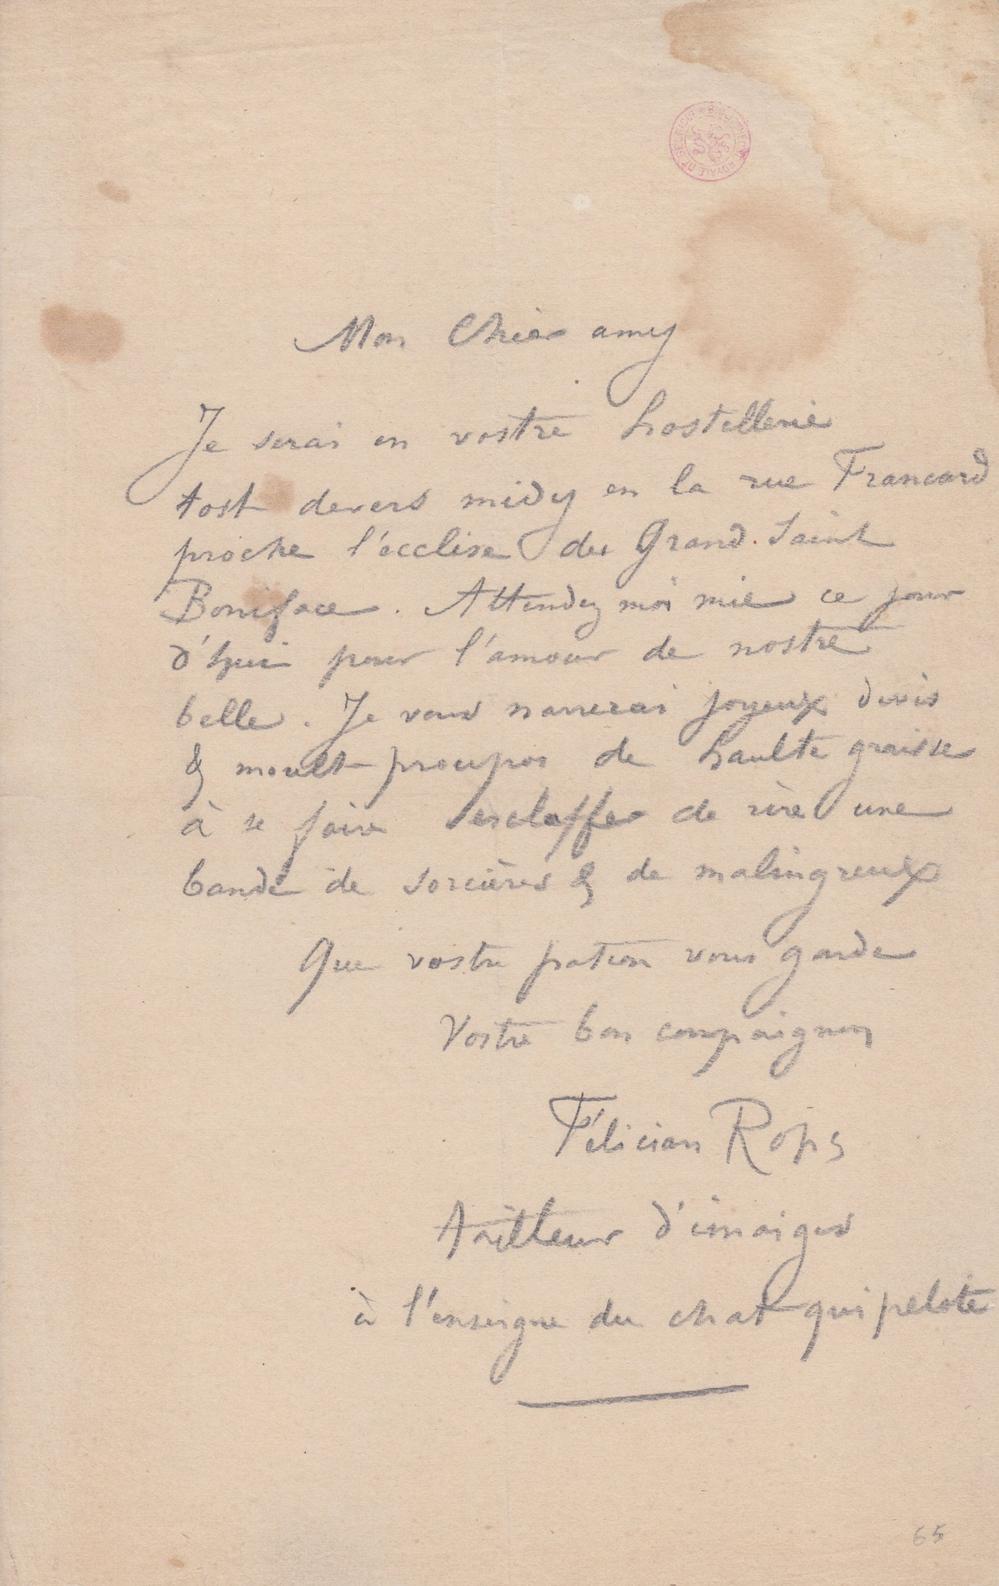 Mon Chier amy
Je serai en vostre hostellerie
tost devers midy en la rue Francard
proche l'ecclise du Grand Saint
Boniface. Attendez moi mie ce jour
d'hui pour l'amour de nostre
belle. Je vous narrerai joyeux devis
& moult proupos de haulte graisse
à se faire esclaffer de rire une
bande de sorcières & de malingreux
Que vostre patron vous garde
Vostre bon compaignon
Félician Rops
Tailleur d'imaiges
à l'enseigne du chat qui pelote
65